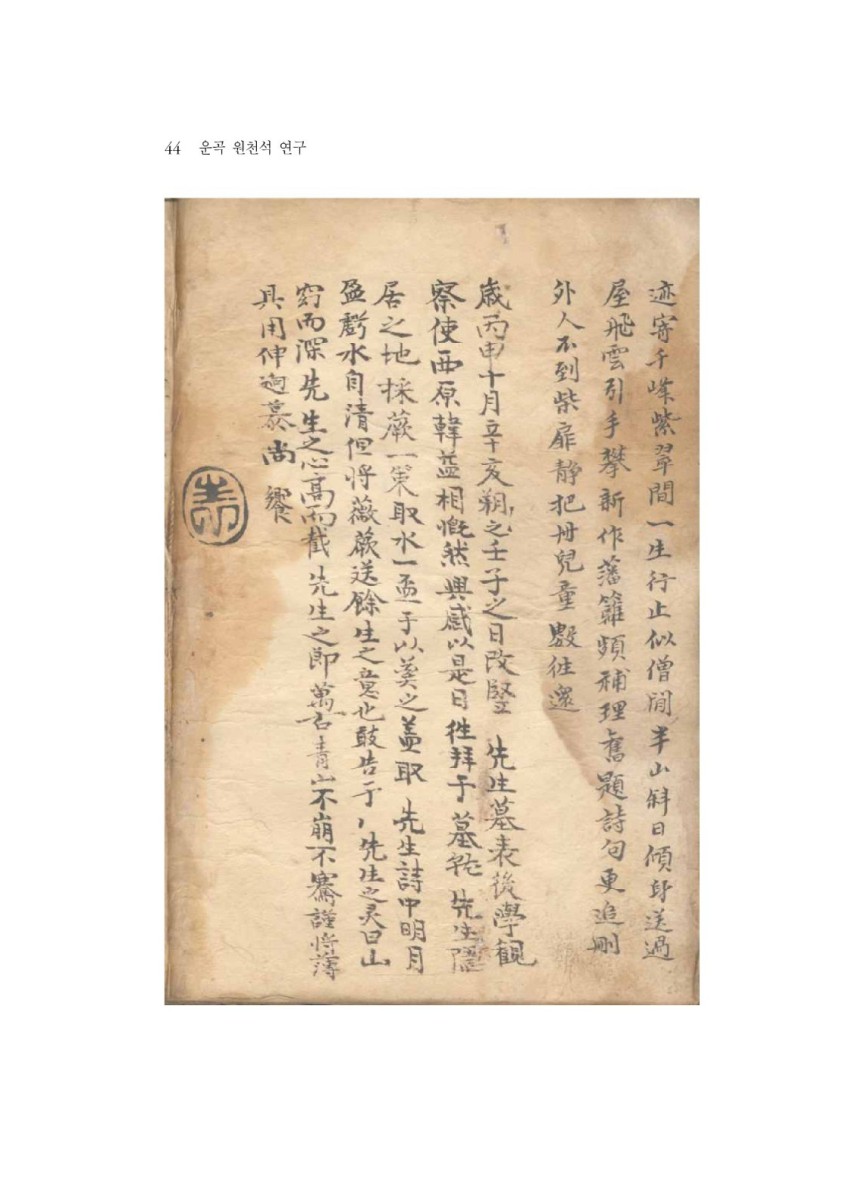 44 운곡 원천석 연구
迹寄千峰紫翠間一生行止似僧閒半山斜日傾身送過
屋飛雲引手攀新作藩籬頻補理舊題詩句更追刪
外人不到柴扉靜把冊兒童數往還
歲丙申十月辛亥朔之壬子之日改竪 先生墓表後學觀
察使西原韓益相慨然興感以是日徃拜于墓 先生隱
居之地採蕨一策取水一盃于以奠之盖取 先生詩中明月
盈虧水自清但將薇蕨送餘生之意也敢告于 先生之灵曰山
窈而深先生之心高而截先生之節萬古青山不崩不騫謹將薄
具用伸逈慕尚饗